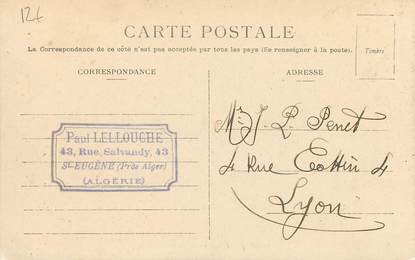 12t
CARTE POSTALE
La Correspondance de ce côté n'est pas acceptée par tous les pays (Se renseigner à la poste).
Timbre
CORRESPONDANCE
ADRESSE
Paul LELLOUCHE
43, Rue Salvandy, 43
St-EUGÈNE (Près Alger)
(ALGÉRIE)
J. P. Penet
4 Rue Cottin 4
Lyon